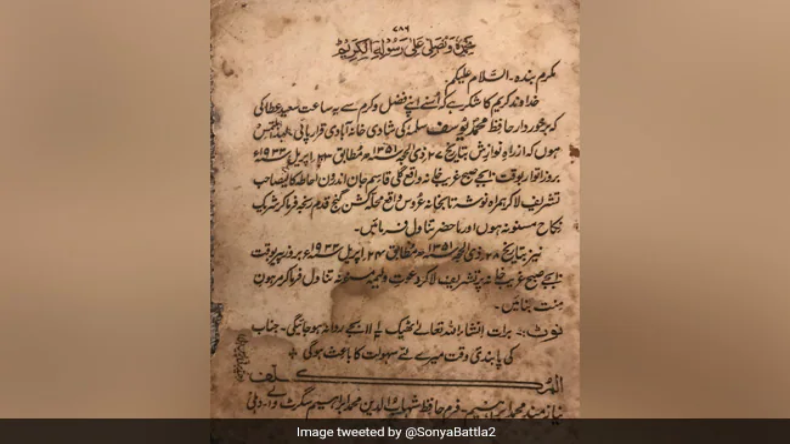 ۷۸۶
نحمدہ ونصلی علیٰ رسولہ الکریم
مکرم بندہ۔ السّلام علیکم۔
خداوند کریم کا شکر ہے کہ اُسنے اپنے فضل و کرم سے یہ ساعت سعید عطا کی
کہ برخوردار حافظ محمّد یُوسف سلمہٗ کی شادی خانہ آبادی قرار پائی۔ لہذا ملتمس
ہوں کہ از راہِ نوازش بتاریخ ۲۷ ذی الحجہ ۱۳۵۱ھ مُطابق ۲۳ اپریل ۱۹۳۳ء
بروز اتوار بوقت ۱۰ بجے صبح غریب خانہ واقع گلی قاسم جان اندرُون احاطہ کالیصاحب
تشریف لا کر ہمراہ نوشتا بخانہ عرُوس واقع محلہ کشن گنج قدم رنجہ فرما کر شریک
نکاح مسنونہ ہوں اور ماحضر تناول فرمائیں۔
نیز بتاریخ ۲۸ ذی الحجہ ۱۳۵۱ھ مطابق ۲۴ اپریل ۱۹۳۳ء بروز پیر بوقت
۱۰ بجے صبح غریب خانہ پر تشریف لا کر دعوتِ ولیمہ مسنونہ تناول فرما کر مرہونِ
منت بنائیں۔
نوٹ:۔ برات انشاء اللہ تعالےٰ ٹھیک بجے روانہ ہو جائیگی۔ جناب
کی پابندی وقت میرے لئے سہولت کا باعث ہوگی
المکلف
نیازمند محمد ابراہیم۔ فرم حافظ شہاب الدین محمد ابراہیم سگرٹ والے۔ دہلی
Image tweeted by @SonyaBattla2